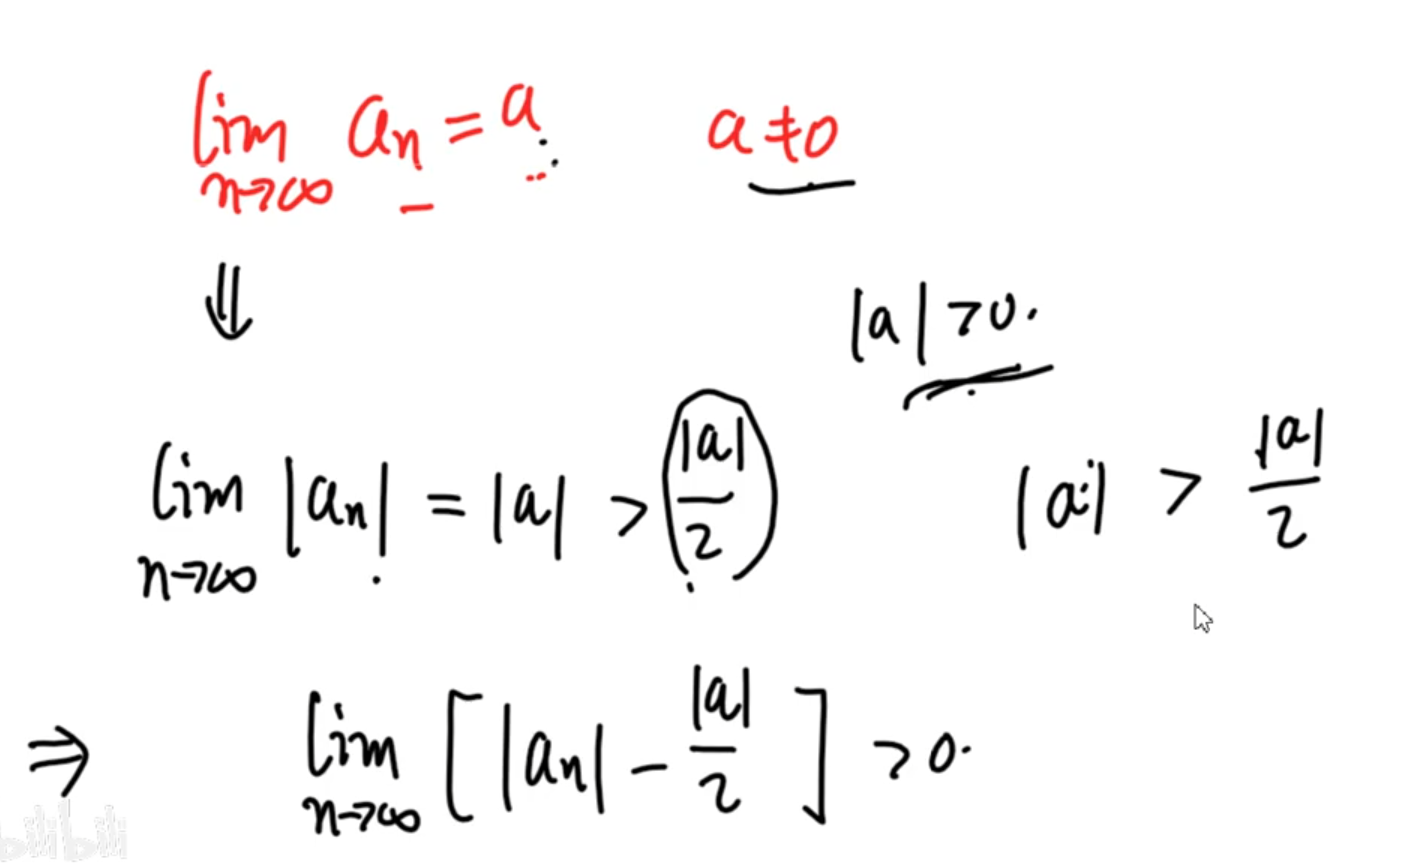 lim a_n = a    a ≠ 0
n→∞
⇓
|a| > 0.
lim |a_n| = |a| > |a|/2    |a| > |a|/2
n→∞
⇒ lim [ |a_n| - |a|/2 ] > 0.
n→∞
bilibili